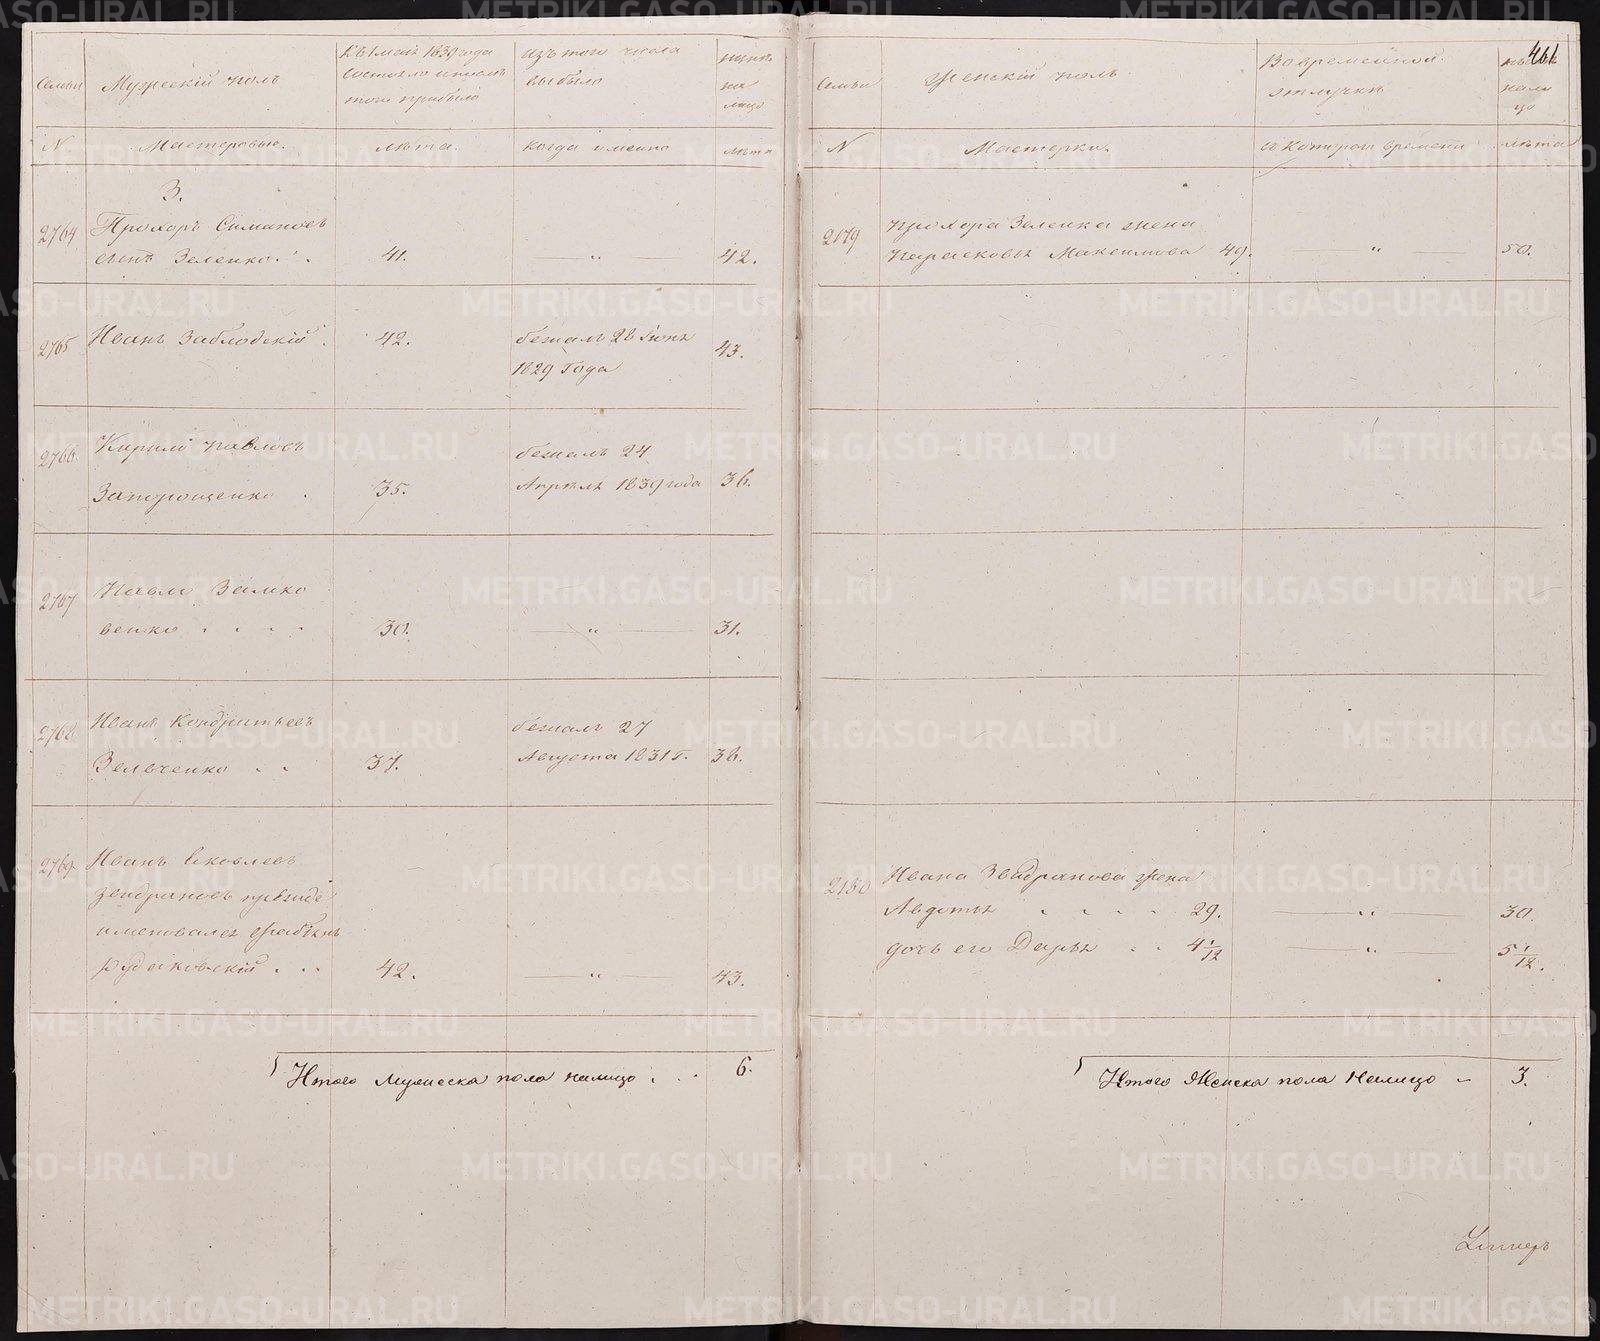 Семьи
Мужескій полъ
Къ 1 маія 1839 года
состояло и послѣ
того прибыло
Изъ того числа
выбыло
нынѣ
на
лицо
N
Мастеровые.
лѣта.
когда именно
лѣта
З.
2764
Прохоръ Симановъ
сынъ Зеленко
41.
"
42.
2765
Иванъ Заблодскій.
42.
бежалъ 28 Іюнь
1829 Года
43.
2766.
Кирило Павловъ
Запорощенко.
35.
бежалъ 24
Апрѣль 1839 года
36.
2767
Павла Замко
венко
30.
"
31.
2768
Иванъ Кондратьевъ
Зельченко
37.
бежалъ 27
Августа 1831 Г.
38.
2769
Иванъ Яковлевъ
именовался
42.
"
43.
Итого Мужеска пола налицо
6.
461
Семьи
Женскій полъ.
Во временной
отлучкѣ
нали
цо
N
Мастерки.
съ котораго времени
лѣта
2179
Прохора Зеленка жена
Парасковья Максимова 49.
"
50.
2180
Ивана Звидранова жена
Авдотья 29.
"
30.
дочь его Дарья 4 1/12
"
5 1/12.
Итого Женска пола налицо
3.
METRIKI.GASO-URAL.RU